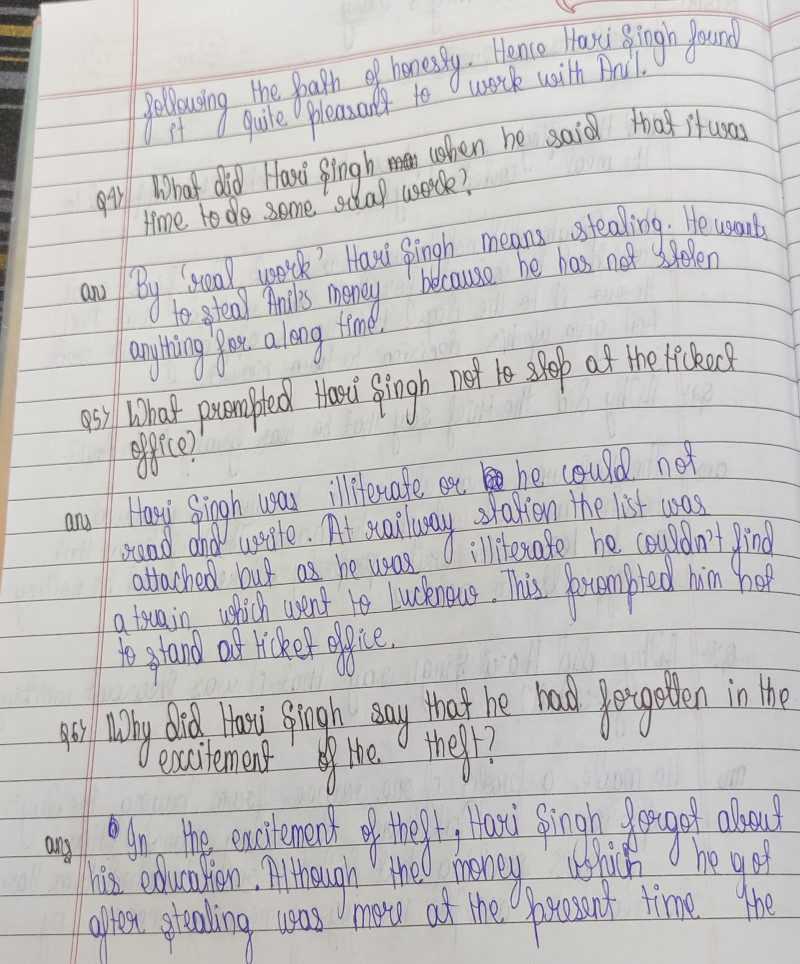 following the path of honesty. Hence Hari Singh found
it quite pleasant to work with Anil.
Q4) What did Hari Singh when he said that it was
time to do some real work?
ans By 'real work' Hari Singh means stealing. He wants
to steal Anil's money because he has not stolen
anything for a long time.
Q5) What prompted Hari Singh not to stop at the tickect
office?
ans Hari Singh was illiterate or he could not
read and write. At railway station the list was
attached but as he was illiterate he couldn't find
a train which went to Lucknow. This prompted him not
to stand at ticket office.
Q6) Why did Hari Singh say that he had forgotten in the
excitement of the theft?
ans In the excitement of theft, Hari Singh forgot about
his education. Although the money which he got
after stealing was more at the present time the